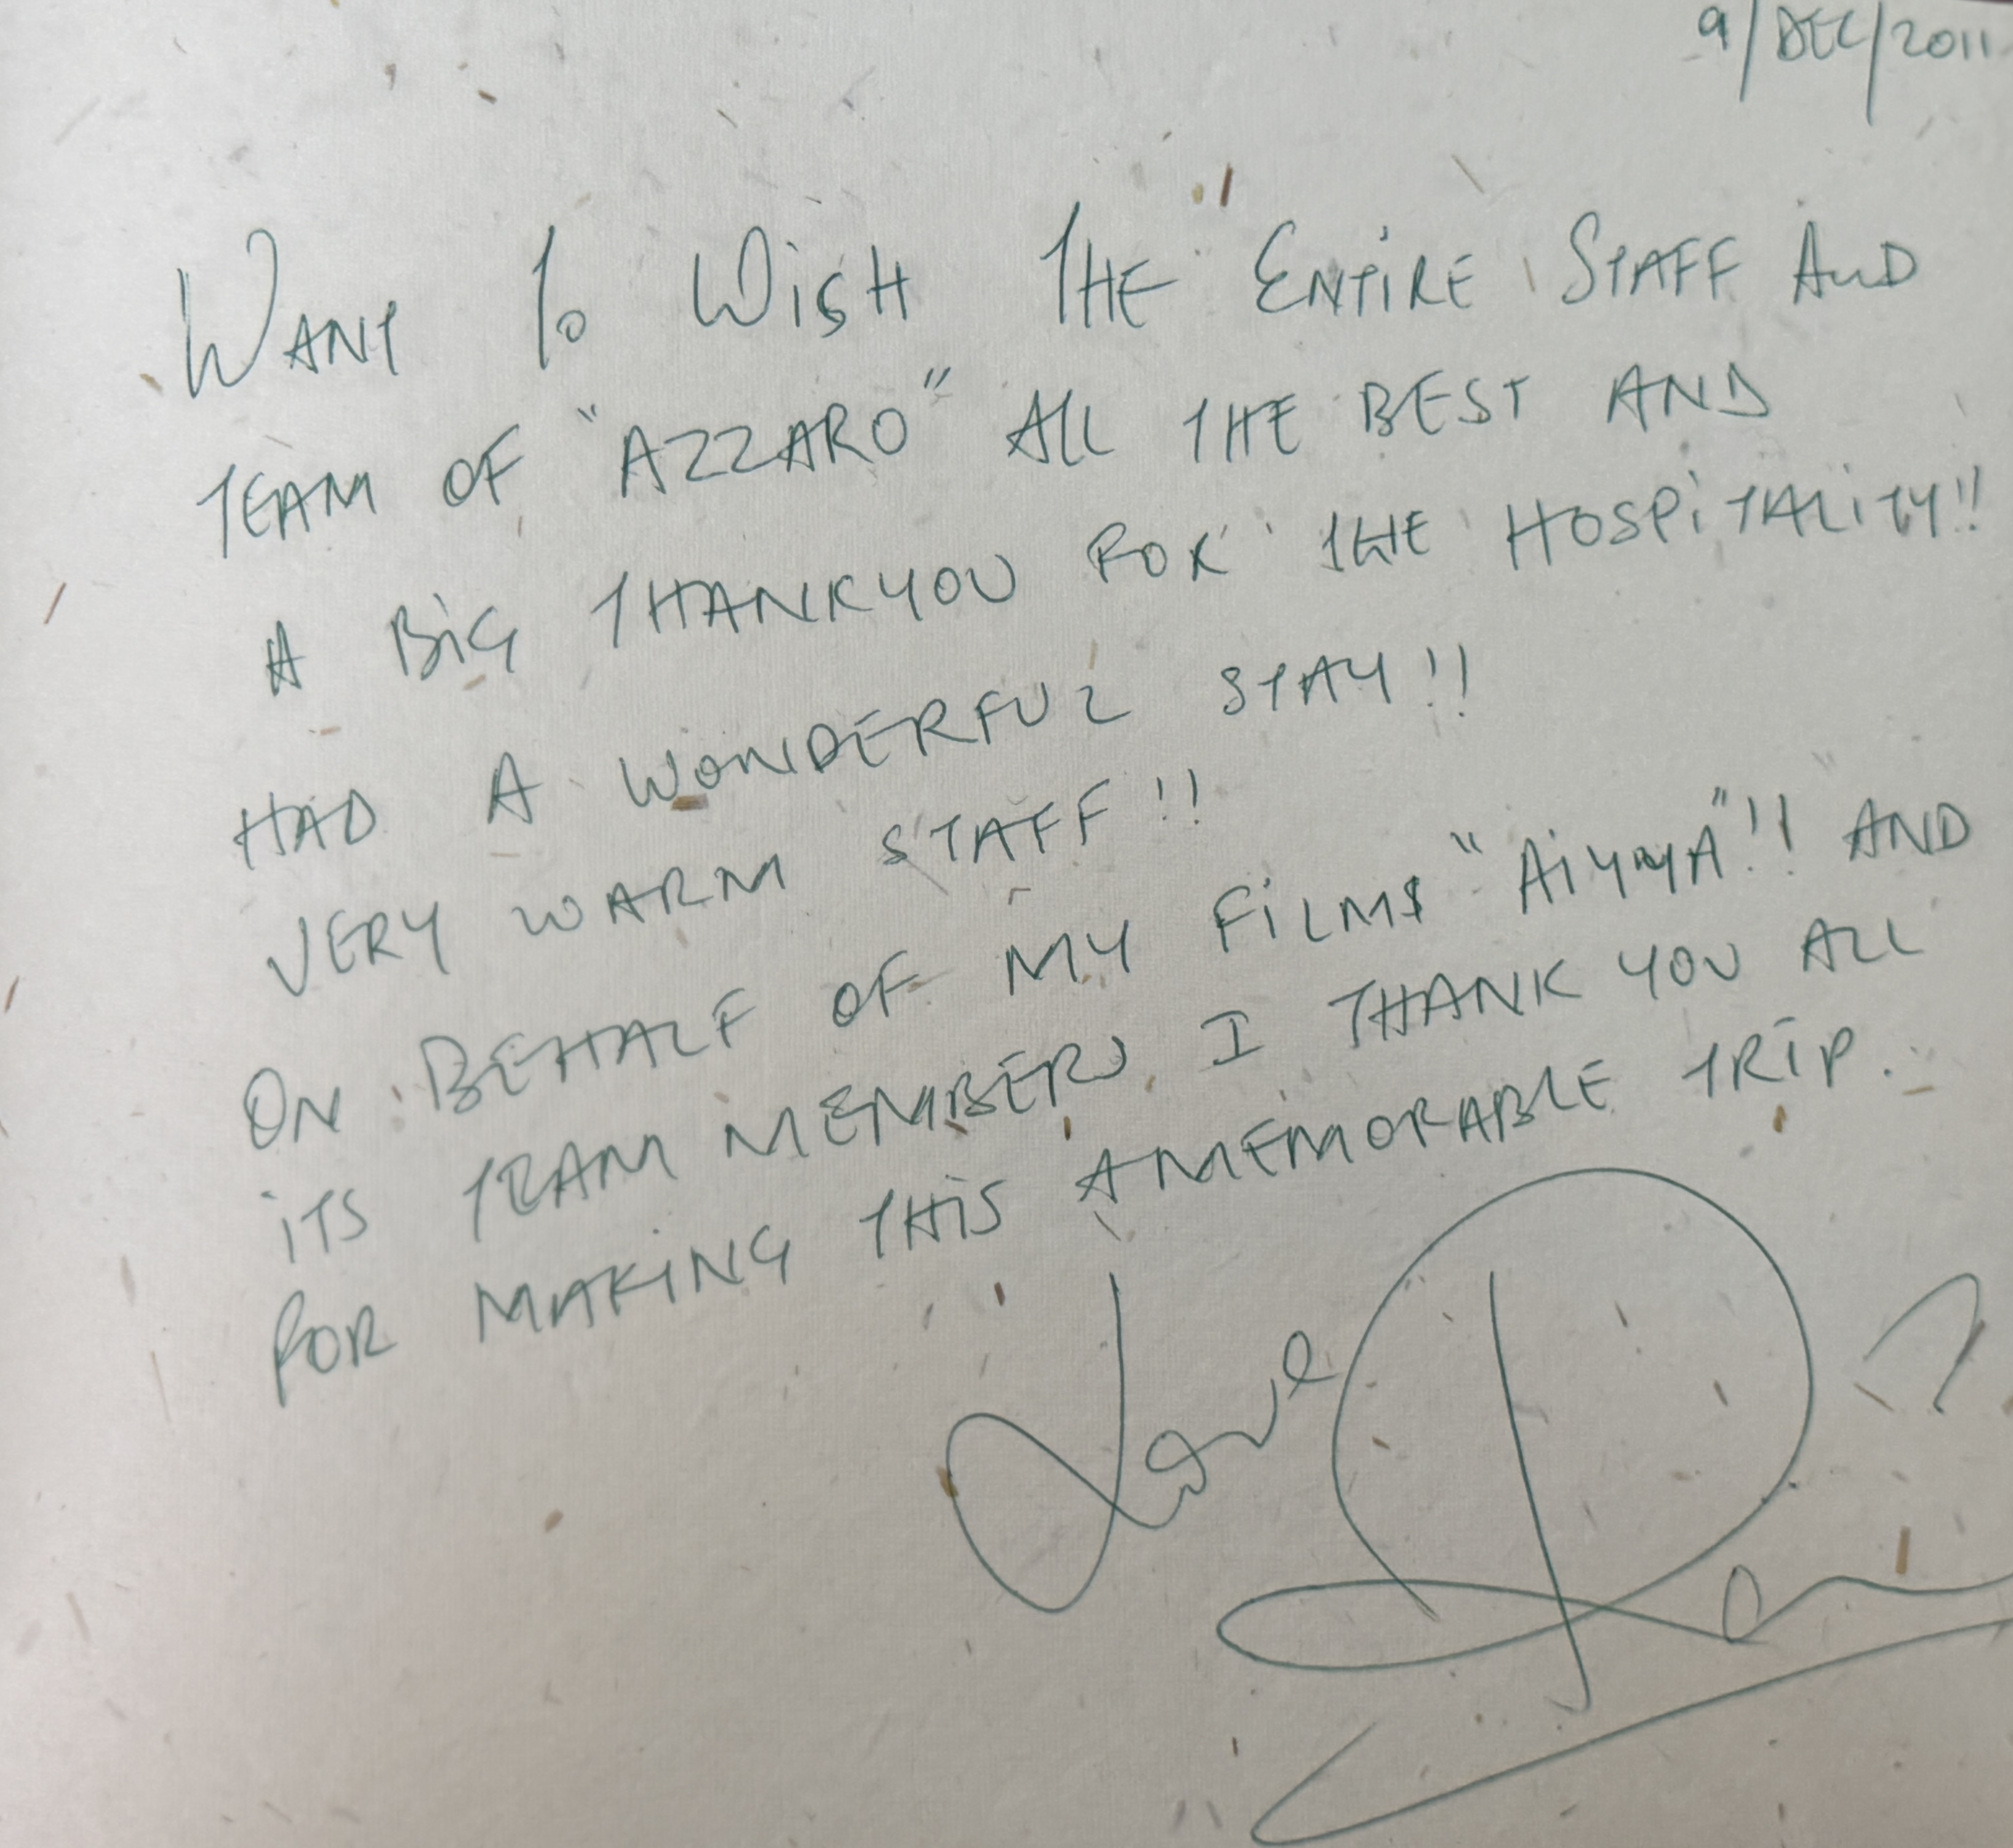 9/DEC/2011
WANT To WiSH THE ENTiRE STAFF AND
TEAM OF "AZZARO" ALL THE BEST AND
A BiG THANKYOU FOR THE HOSPiTALiTY!!
HAD A WONDERFUL STAY!!
VERY WARM STAFF!!
ON BEHALF OF MY FiLMS "AiYYYA"!! AND
iTS TEAM MEMBERS I THANK YOU ALL
FOR MAKiNG THiS A MEMORABLE TRiP.
Love